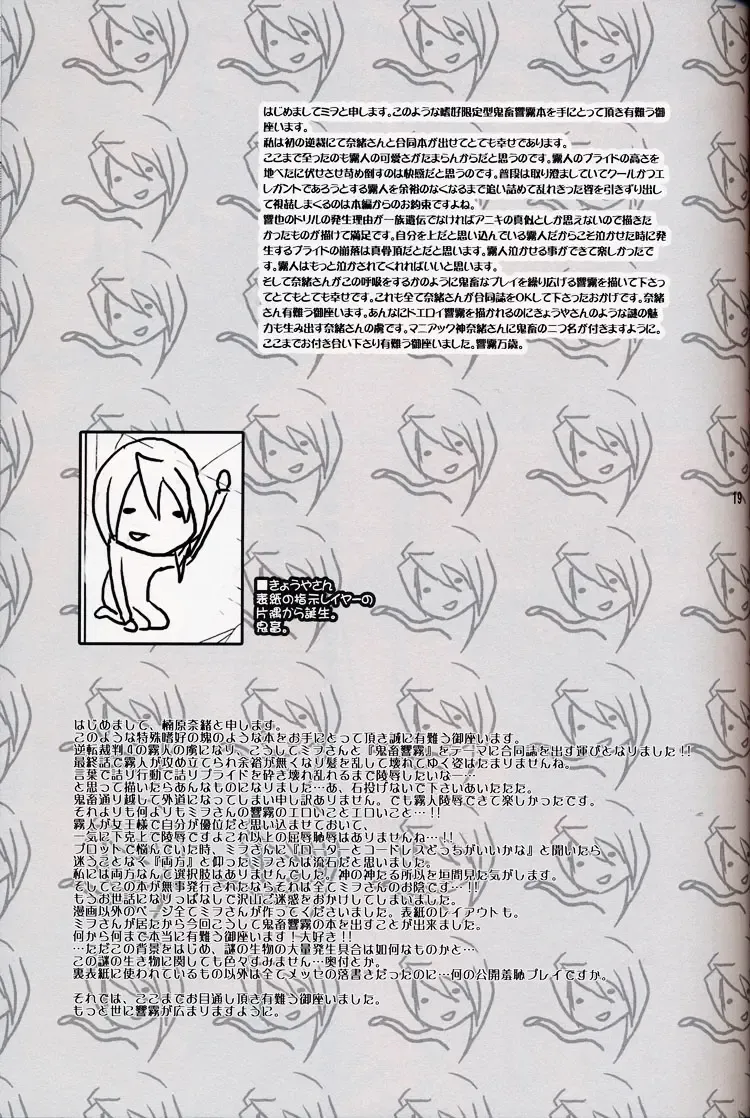 はじめましてミヲと申します。このような嗜好限定型鬼畜響霧本を手にとって頂き有難う御
座います。
私は初の逆裁にて奈緒さんと合同本が出せてとても幸せであります。
ここまで至ったのも霧人の可愛さがたまらんからだと思うのです。霧人のプライドの高さを
地べたに伏せさせ苛め倒すのは快感だと思うのです。普段は取り澄ましていてクールかつエ
レガントであろうとする霧人を余裕のなくなるまで追い詰めて乱れきった姿を引きずり出し
て視詰しまくるのは本編からのお約束ですよね。
響也のドリルの発生理由が一族遺伝でなければアニキの真似としか思えないので描きた
かったものが描けて満足です。自分を上だと思い込んでいる霧人だからこそ泣かせた時に発
生するプライドの崩落は真骨頂だとだと思います。霧人泣かせる事ができて楽しかったで
す。霧人はもっと泣かされてくれればいいと思います。
そして奈緒さんがこの呼吸をするかのように鬼畜なプレイを繰り広げる響霧を描いて下さっ
てとてもとても幸せです。これも全て奈緒さんが合同誌をOKして下さったおかげです。奈緒
さん有難う御座います。あんなにドエロイ響霧を描かれるのにきょうやさんのような謎の魅
力も生み出す奈緒さんの虜です。マニアック神奈緒さんに鬼畜の二つ名が付きますように。
ここまでお付き合い下さり有難う御座いました。響霧万歳。
19
■きょうやさん
表紙の指示レイヤーの
片隅から誕生。
鬼畜。
はじめまして、楠原奈緒と申します。
このような特殊嗜好の塊のような本をお手にとって頂き誠に有難う御座います。
逆転裁判4の霧人の虜になり、こうしてミヲさんと『鬼畜響霧』をテーマに合同誌を出す運びとなりました!!
最終話で霧人が攻め立てられ余裕が無くなり髪を乱して壊れてゆく姿はたまりませんね。
言葉で詰り行動で詰りプライドを砕き壊れ乱れるまで陵辱したいなー…
と思って描いたらあんなものになりました…あ、石投げないで下さいあいたたた。
鬼畜通り越して外道になってしまい申し訳ありません。でも霧人陵辱できて楽しかったです。
それよりも何よりもミヲさんの響霧のエロいことエロいこと…!!
霧人が女王様で自分が優位だと思い込ませておいて、
一気に下克上で陵辱ですよこれ以上の屈辱恥辱はありませんね…!!
プロットで悩んでいた時、ミヲさんに『ローターとコードレスどっちがいいかな』と聞いたら
迷うことなく『両方』と仰ったミヲさんは流石だと思いました。
私には両方なんて選択肢はありませんでした。神の神たる所以を垣間見た気がします。
そしてこの本が無事発行されたならそれは全てミヲさんのお陰です…!!
もうお世話になりっぱなしで沢山ご迷惑をおかけしてしまいました。
漫画以外のページ全てミヲさんが作ってくださいました。表紙のレイアウトも。
ミヲさんが居たから今回こうして鬼畜響霧の本を出すことが出来ました。
何から何まで本当に有難う御座います!大好き!!
…ただこの背景をはじめ、謎の生物の大量発生具合は如何なものかと…
この謎の生き物に関しても色々すみません…奥付とか。
裏表紙に使われているもの以外は全てメッセの落書きだったのに…何の公開羞恥プレイですか。
それでは、ここまでお目通し頂き有難う御座いました。
もっと世に響霧が広まりますように。